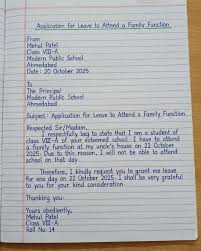 Application for Leave to Attend a Family Function
From
Mehul Patel
Class VIII-A
Modern Public School
Ahmedabad
Date : 20 October 2025
To
The Principal
Modern Public School
Ahmedabad
Subject : Application for Leave to Attend a Family Function.
Respected Sir/Madam,
I respectfully beg to state that I am a student of
class VIII-A of your esteemed school. I have to attend
a family function at my house on 22 October
2025. Due to this reason, I will not be able to attend
school on that day
Therefore, I kindly request you to grant me leave
for one day on 22 October 2025. I shall be very grateful
to you for your kind consideration
Thanking you
Yours obediently,
Mehul Patel
Class VIII-A
Roll No. 14